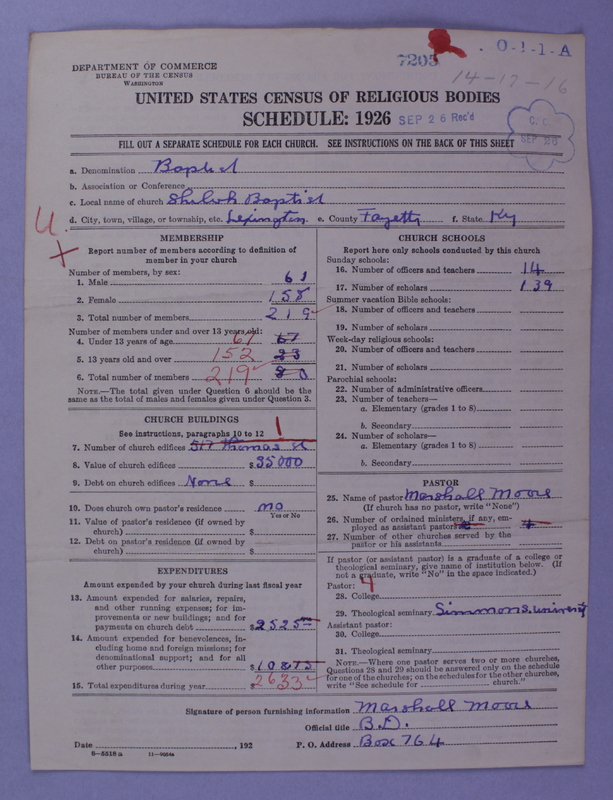 7205
O-1-1-A
14-17-16
DEPARTMENT OF COMMERCE
BUREAU OF THE CENSUS
WASHINGTON
UNITED STATES CENSUS OF RELIGIOUS BODIES
SCHEDULE: 1926 SEP 26 Rec'd
FILL OUT A SEPARATE SCHEDULE FOR EACH CHURCH. SEE INSTRUCTIONS ON THE BACK OF THIS SHEET
a. Denomination Baptist
b. Association or Conference
c. Local name of church Shiloh Baptist
d. City, town, village, or township, etc. Lexington e. County Fayette f. State Ky
U.
X
MEMBERSHIP
Report number of members according to definition of
member in your church
Number of members, by sex:
1. Male 61
2. Female 158
3. Total number of members 219
Number of members under and over 13 years old:
4. Under 13 years of age 67 67
5. 13 years old and over 152 23
6. Total number of members 219 80
NOTE.—The total given under Question 6 should be the
same as the total of males and females given under Question 3.
CHURCH BUILDINGS
See instructions, paragraphs 10 to 12 1
7. Number of church edifices 517 Thomas st
8. Value of church edifices $ 35000
9. Debt on church edifices None $
10. Does church own pastor's residence no
Yes or No
11. Value of pastor's residence (if owned by
church) $
12. Debt on pastor's residence (if owned by
church) $
EXPENDITURES
Amount expended by your church during last fiscal year
13. Amount expended for salaries, repairs,
and other running expenses; for im-
provements or new buildings; and for
payments on church debt $ 2525
14. Amount expended for benevolences, in-
cluding home and foreign missions; for
denominational support; and for all
other purposes $ 10875
15. Total expenditures during year $ 2633
CHURCH SCHOOLS
Report here only schools conducted by this church
Sunday schools:
16. Number of officers and teachers 14
17. Number of scholars 139
Summer vacation Bible schools:
18. Number of officers and teachers
19. Number of scholars
Week-day religious schools:
20. Number of officers and teachers
21. Number of scholars
Parochial schools:
22. Number of administrative officers
23. Number of teachers—
a. Elementary (grades 1 to 8)
b. Secondary
24. Number of scholars—
a. Elementary (grades 1 to 8)
b. Secondary
PASTOR
25. Name of pastor Marshall Moore
(If church has no pastor, write "None")
26. Number of ordained ministers, if any, em-
ployed as assistant pastors
27. Number of other churches served by the
pastor or his assistants
If pastor (or assistant pastor) is a graduate of a college or
theological seminary, give name of institution below. (If
not a graduate, write "No" in the space indicated.)
Pastor:
28. College
29. Theological seminary Simmons University
Assistant pastor:
30. College
31. Theological seminary
NOTE.—Where one pastor serves two or more churches,
Questions 28 and 29 should be answered only on the schedule
for one of the churches; on the schedules for the other churches,
write "See schedule for church."
Signature of person furnishing information Marshall Moore
Official title B.D.
Date , 192 P. O. Address Box 764